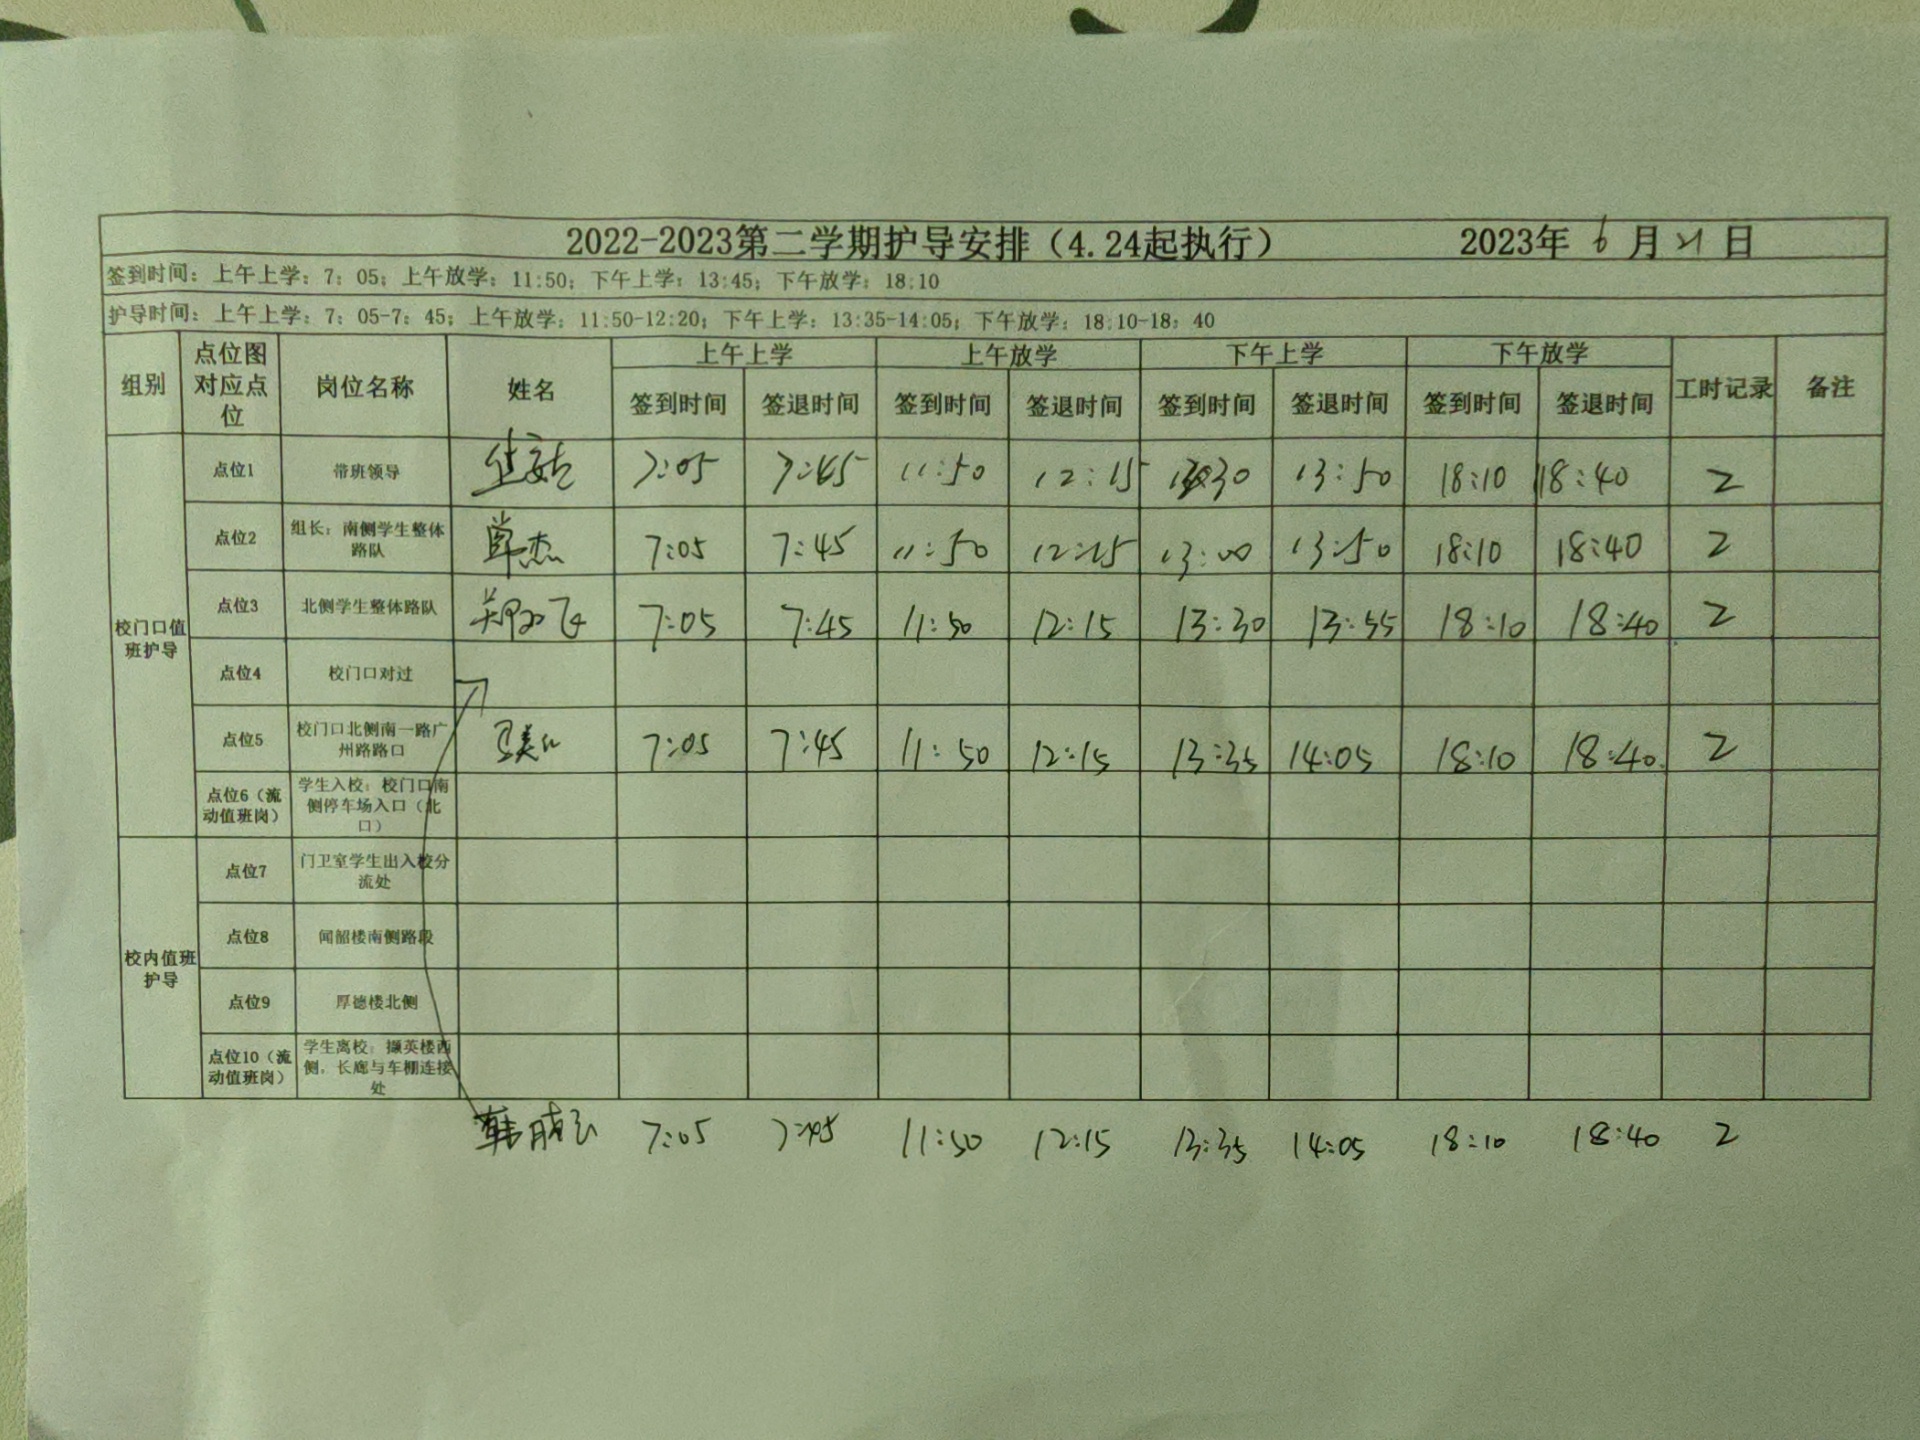 2022-2023第二学期护导安排（4.24起执行） 2023年 6 月 21 日
签到时间：上午上学：7：05；上午放学：11:50；下午上学：13:45；下午放学：18:10
护导时间：上午上学：7：05-7：45；上午放学：11:50-12:20；下午上学：13:35-14:05；下午放学：18:10-18：40
组别 点位图对应点位 岗位名称 姓名 上午上学 上午放学 下午上学 下午放学 工时记录 备注
签到时间 签退时间 签到时间 签退时间 签到时间 签退时间 签到时间 签退时间
校门口值班护导
点位1 带班领导 7:05 7:45 11:50 12:15 13:30 13:50 18:10 18:40 2
点位2 组长：南侧学生整体路队 单杰 7:05 7:45 11:50 12:15 13:00 13:50 18:10 18:40 2
点位3 北侧学生整体路队 7:05 7:45 11:50 12:15 13:30 13:55 18:10 18:40 2
点位4 校门口对过
点位5 校门口北侧南一路广州路路口 7:05 7:45 11:50 12:15 13:35 14:05 18:10 18:40 2
点位6（流动值班岗） 学生入校：校门口南侧停车场入口（北口）
校内值班护导
点位7 门卫室学生出入校分流处
点位8 闻韶楼南侧路段
点位9 厚德楼北侧
点位10（流动值班岗） 学生离校：撷英楼西侧，长廊与车棚连接处
7:05 7:45 11:50 12:15 13:35 14:05 18:10 18:40 2